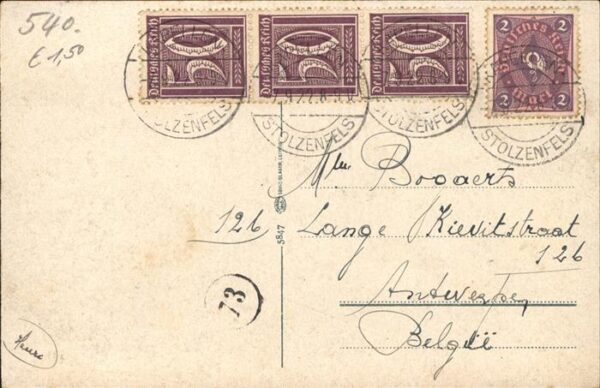 540.
€ 1,50
Deutsches Reich
50
Deutsches Reich
50
Deutsches Reich
50
2
Deutsches Reich
2
2
STOLZENFELS
STOLZENFELS
STOLZENFELS
STOLZENFELS
Bogaerts
126
Lange Kievitstraat
126
Antwerpen
België
5847
73